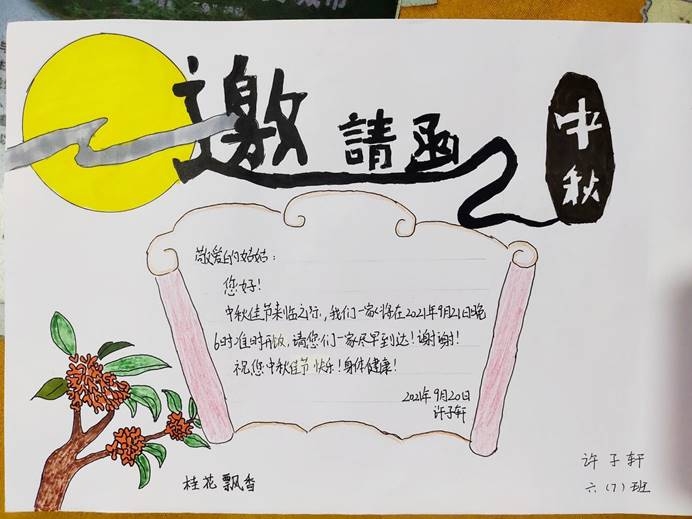 邀請函
中秋
敬爱的姑姑：
您好！
中秋佳节来临之际，我们一家将在2021年9月21日晚
6时准时开饭，请您们一家尽早到达！谢谢！
祝您中秋佳节快乐！身体健康！
2021年9月20日
许子轩
桂花飘香
许子轩
六（7）班